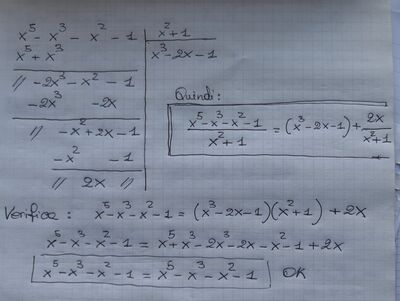 x⁵ - x³ - x² - 1 | x² + 1
x⁵ + x³ | x³ - 2x - 1
// -2x³ - x² - 1
-2x³ -2x
// -x² + 2x - 1
-x² -1
// 2x //
Quindi:
(x⁵ - x³ - x² - 1)/(x² + 1) = (x³ - 2x - 1) + 2x/(x² + 1)
Verifica: x⁵ - x³ - x² - 1 = (x³ - 2x - 1)(x² + 1) + 2x
x⁵ - x³ - x² - 1 = x⁵ + x³ - 2x³ - 2x - x² - 1 + 2x
x⁵ - x³ - x² - 1 = x⁵ - x³ - x² - 1 OK